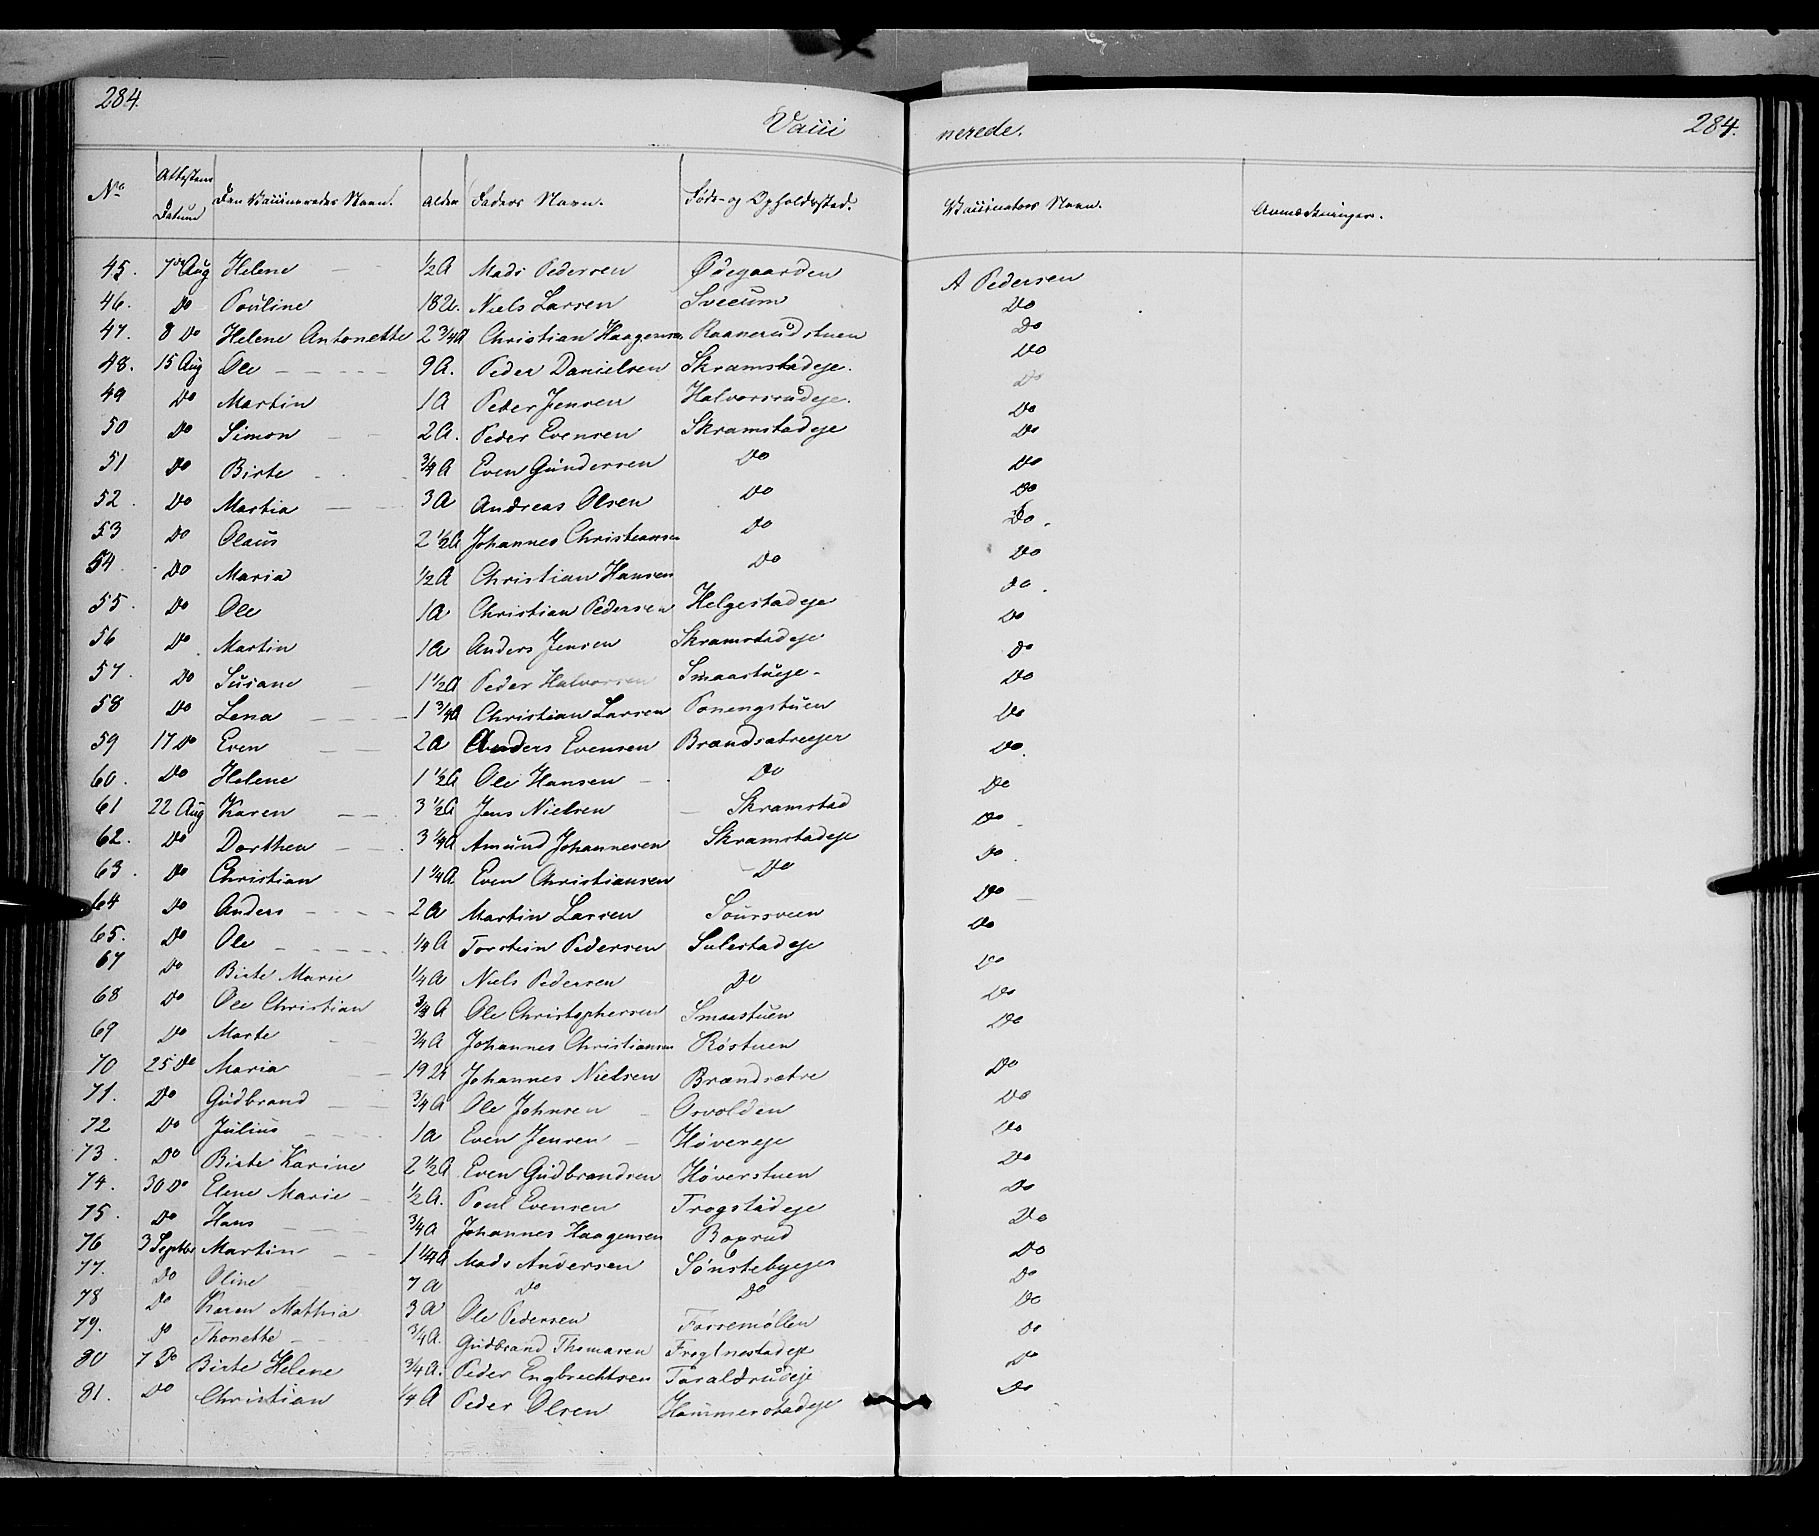 284. 284.
Vaccinerede.
No Attestens Datum Den Vaccineredes Navn. Alder Faders Navn. Føde- og Opholdssted. Vaccinators Navn. Anmærkninger.
45. 7de Aug Helene ½ A Mads Pedersen Ødegaarden A Pedersen
46. Do Pouline 18 U. Niels Larsen Sveeum Do
47. 8 Do Helene Antonette 2 ¾ A Christian Haagensen Raanerudstuen Do
48. 15 Aug Ole 9 A. Peder Danielsen Skramstadeje. Do
49 Do Martin 1 A Peder Jensen Halvorsrudeje. Do
50 Do Simon 2 A. Peder Evensen Skramstadeje Do
51 Do Birte ¾ A Even Gundersen Do Do
52. Do Martia 3 A Andreas Olsen Do Do
53 Do Olaus 2 ½ A Johannes Christiansen Do Do
54. Do Maria ½ A Christian Hansen Do Do
55. Do Ole 1 A Christian Pedersen Helgestadeje Do
56 Do Martin 1 A Anders Jensen Skramstadeje Do
57. Do Susane 1 ½ A Peder Halvorsen Smaastueje Do
58 Do Lena 1 ¾ A Christian Larsen Ponengstuen Do
59 17 Do Even 2 A Anders Evensen Brændsætreejer Do
60. Do Helene 1 ½ A Ole Hansen Do Do
61 22 Aug Karen 3 ½ A Jens Nielsen Skramstad Do
62. Do Dorthea 3 ¼ A Amund Johannesen Skramstadeje Do
63. Do Christian 1 ¼ A Even Christiansen Do Do
64 Do Anders 2 A Martin Larsen Soursveen Do
65. Do Ole ¼ A Torstein Pedersen Sulestadeje Do
67 Do Birte Marie ¼ A Niels Pedersen Do Do
68 Do Ole Christian ¾ A Ole Christophersen Smaastuen Do
69 Do Marte ¾ A Johannes Christiansen Røstuen Do
70 25 Do Maria 19 U Johannes Nielsen Brændsætre Do
71. Do Gudbrand ¾ A Ole Johnsen Osvolden Do
72 Do Julius 1 A Even Jensen Høvereje Do
73. Do Birte Karine 2 ½ A Even Gudbrandsen Høverstuen Do
74. 30 Do Elene Marie ½ A. Poul Evensen Frogstadeje Do
75. Do Hans ¾ A Johannes Haagensen Boxrud Do
76 3 Septbr Martin 1 ¼ A Mads Andersen Sønstebyejer Do
77. Do Oline 7 A Do Do Do
78 Do Karen Mathia 3 A Ole Pedersen Fossemøllen Do
79. Do Thonette ¾ A. Gudbrand Thomasen Frognestadeje Do
80 7 Do Birte Helene ¾ A. Peder Engbrechtsen Taraldrudeje Do
81. Do Christian ¼ A Peder Olsen Hammerstadeje Do